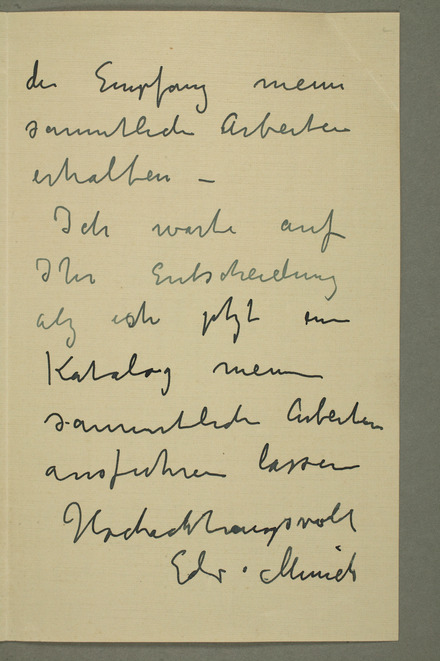 den Empfang meiner
sammtliche Arbeiten
erhalten –
Ich warte auf
Ihre Entscheidung
als ich jetzt ein
Katalog meiner
sammtliche Arbeiten
ausführen lassen
Hochachtungsvoll
Edv. Munch